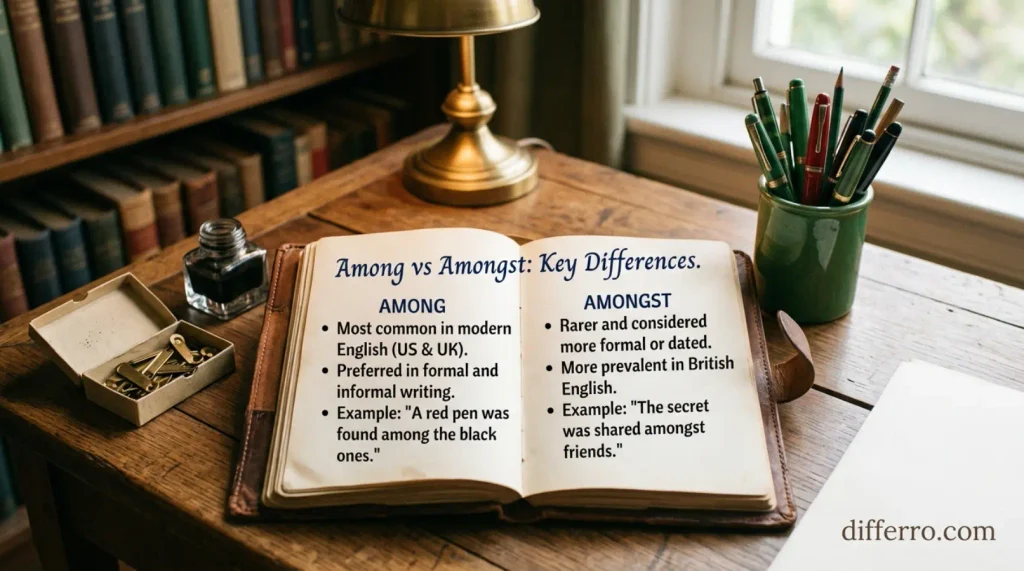 Among vs Amongst: Key Differences.
AMONG
• Most common in modern
English (US & UK).
• Preferred in formal and
informal writing.
• Example: "A red pen was
found among the black
ones."
AMONGST
• Rarer and considered
more formal or dated.
• More prevalent in British
English.
• Example: "The secret
was shared amongst
friends."
differro.com